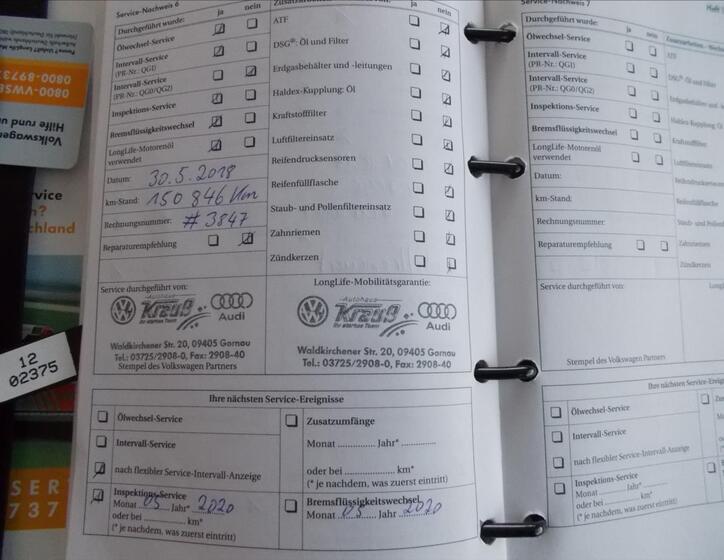 Service-Nachweis 6
Durchgeführt wurde: ja nein
Ölwechsel-Service
Intervall-Service
(PR-Nr.: QG1)
Intervall-Service
(PR-Nr.: QG0/QG2)
Inspektions-Service
Bremsflüssigkeitswechsel
LongLife-Motorenöl
verwendet
Datum: 30.5.2018
km-Stand: 150 846 Km
Rechnungsnummer: # 3847
Reparaturempfehlung
ja nein
ATF
DSG®: Öl und Filter
Erdgasbehälter und -leitungen
Haldex-Kupplung: Öl
Kraftstofffilter
Luftfiltereinsatz
Reifendrucksensoren
Reifenfüllflasche
Staub- und Pollenfiltereinsatz
Zahnriemen
Zündkerzen
Service durchgeführt von:
Autohaus
Krauß
Ihr starkes Team
Audi
Waldkirchener Str. 20, 09405 Gornau
Tel.: 03725/2908-0, Fax: 2908-40
Stempel des Volkswagen Partners
LongLife-Mobilitätsgarantie:
Autohaus
Krauß
Ihr starkes Team
Audi
Waldkirchener Str. 20, 09405 Gornau
Tel.: 03725/2908-0, Fax: 2908-40
Ihre nächsten Service-Ereignisse
Ölwechsel-Service
Intervall-Service
nach flexibler Service-Intervall-Anzeige
Inspektions-Service
Monat 05 Jahr* 2020
oder bei .............. km*
(* je nachdem, was zuerst eintritt)
Zusatzumfänge
Monat ............ Jahr* ............
oder bei .............. km*
(* je nachdem, was zuerst eintritt)
Bremsflüssigkeitswechsel
Monat 05 Jahr 2020
Service-Nachweis 7
Durchgeführt wurde: ja nein
Ölwechsel-Service
Intervall-Service
(PR-Nr.: QG1)
Intervall-Service
(PR-Nr.: QG0/QG2)
Inspektions-Service
Bremsflüssigkeitswechsel
LongLife-Motorenöl
verwendet
Datum:
km-Stand:
Rechnungsnummer:
Reparaturempfehlung
ATF
DSG®: Öl und Filter
Haldex-Kupplung: Öl
Kraftstofffilter
Luftfiltereinsatz
Zahnriemen
Zündkerzen
Service durchgeführt von:
Stempel des Volkswagen Partners
Ihre nächsten Service-Ereignisse
Ölwechsel-Service
Intervall-Service
nach flexibler Service-Intervall-Anzeige
Inspektions-Service
Monat ............ Jahr* ............
oder bei .............. km*
(* je nachdem, was zuerst eintritt)
12
02375